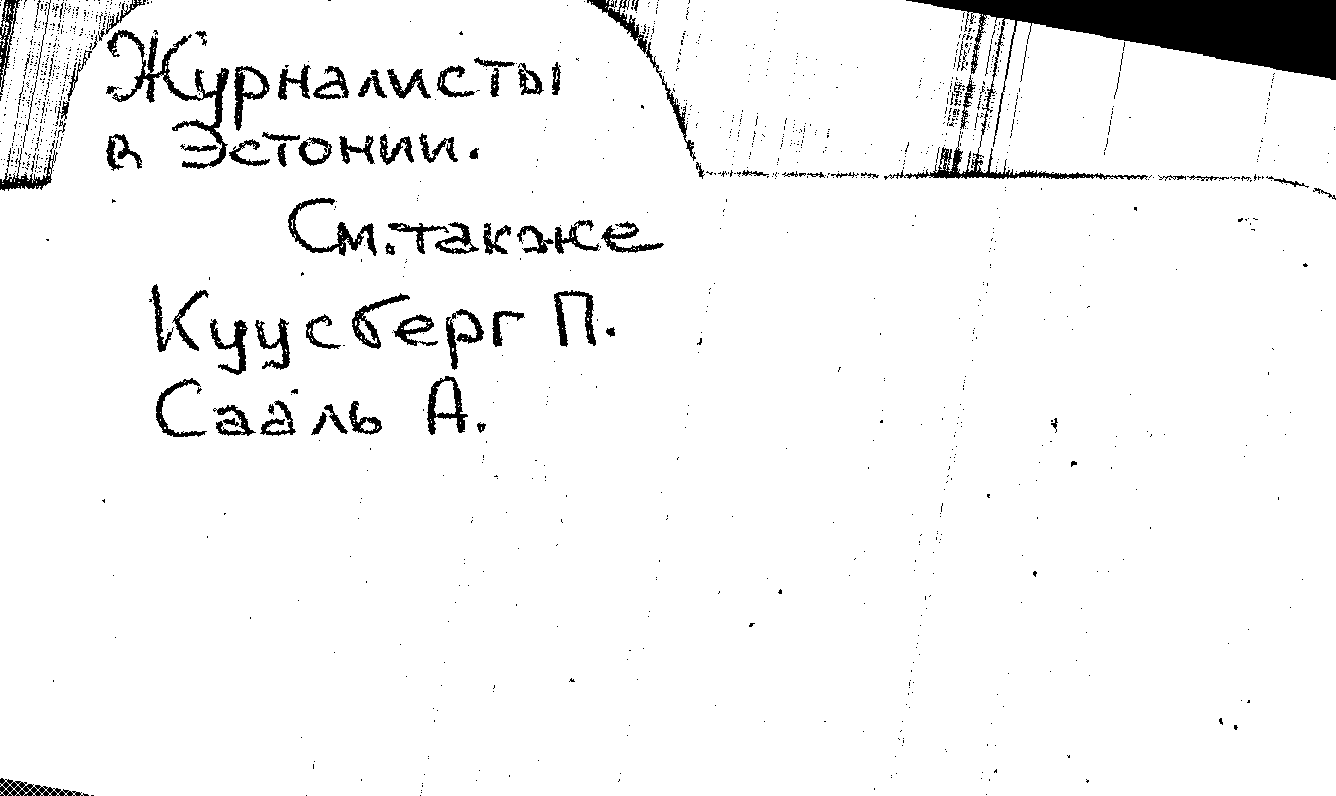 Журналисты
в Эстонии.
См. также
Куусберг П.
Сааль А.